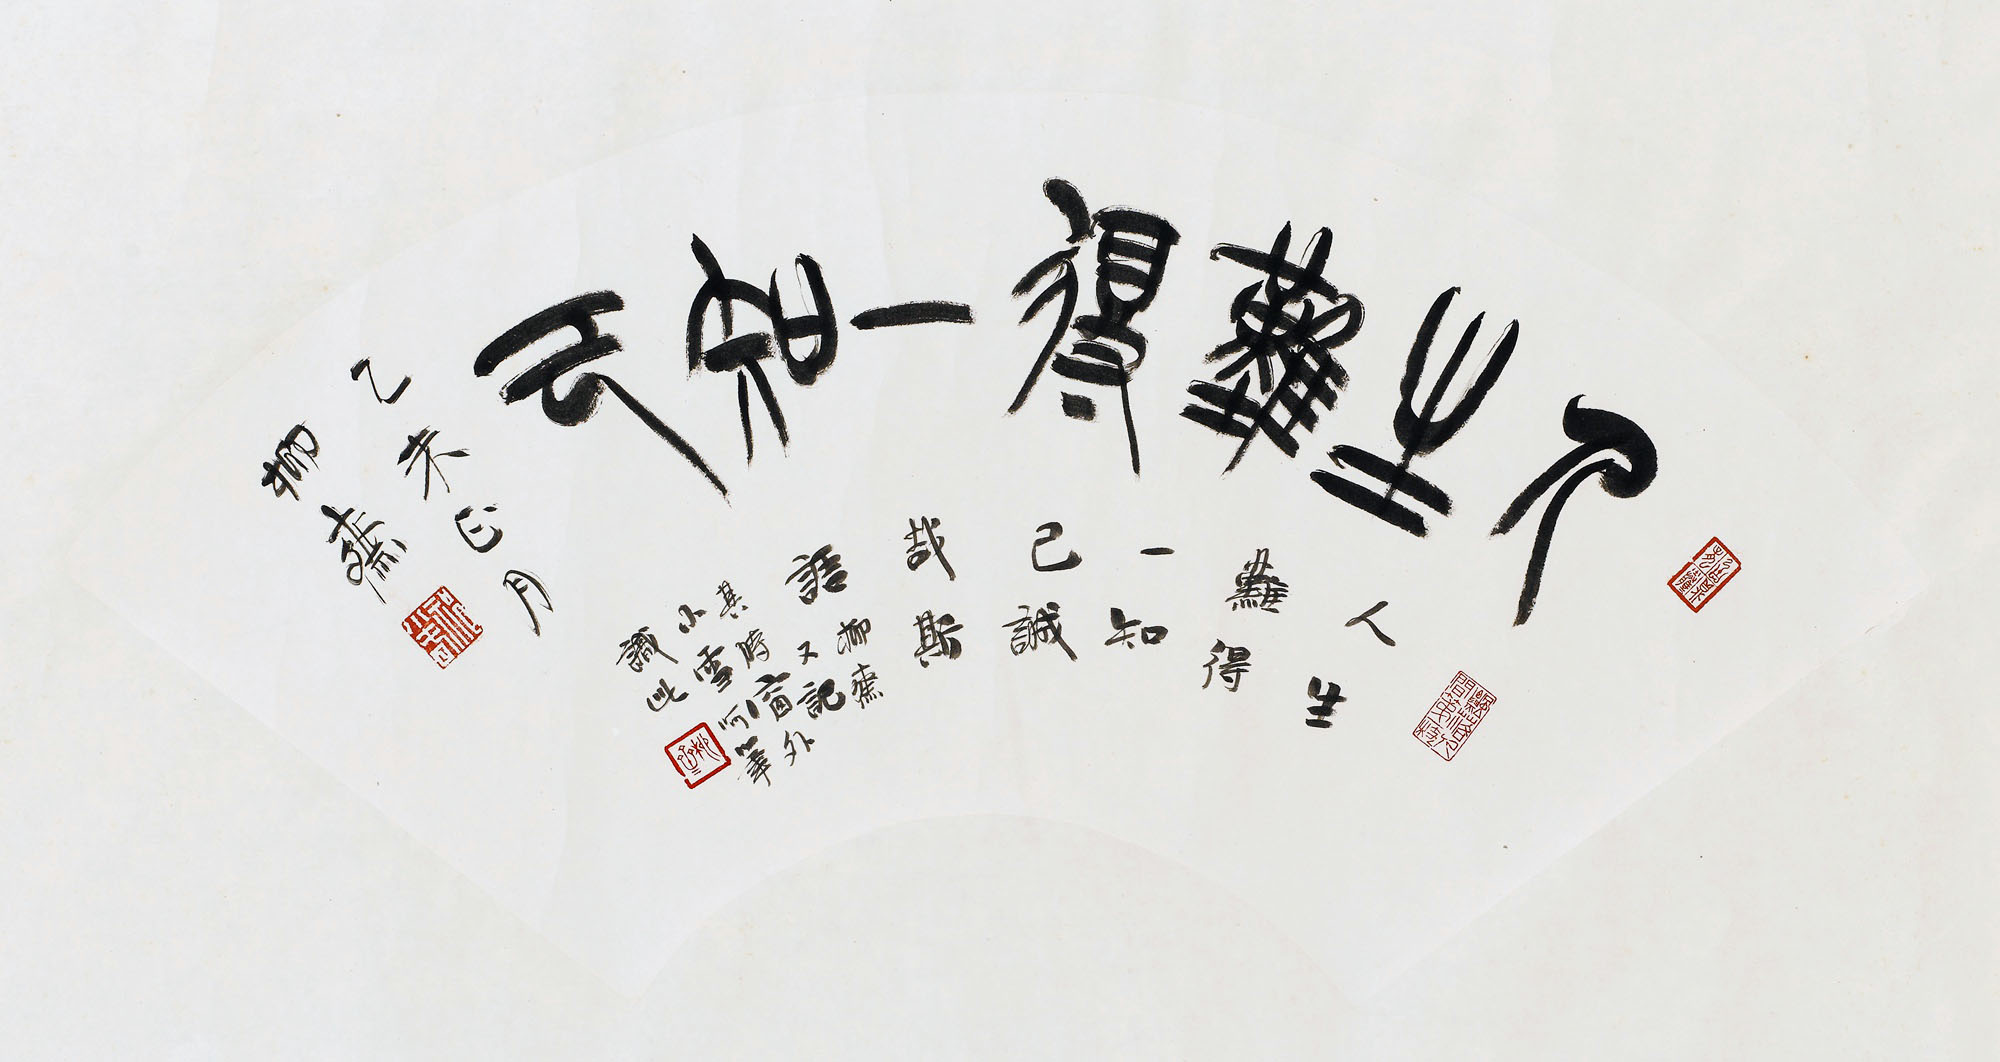 人生難得一知己
乙未正月
柳齋
人生
難得
一知
己誠
哉斯
語
柳齋
又記
其時窗外
小雪呵筆
識此